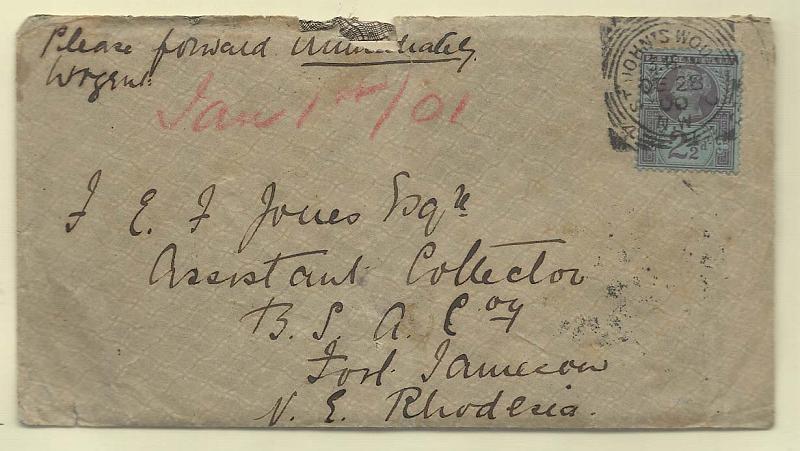 Please forward immediately
Urgent
Jan 1st/01
ST JOHN'S WOOD
DE 28
00
N.W
2½d
F E. F Jones Esqre
Assistant Collector
B. S. A. Coy
Fort Jameson
N. E. Rhodesia.